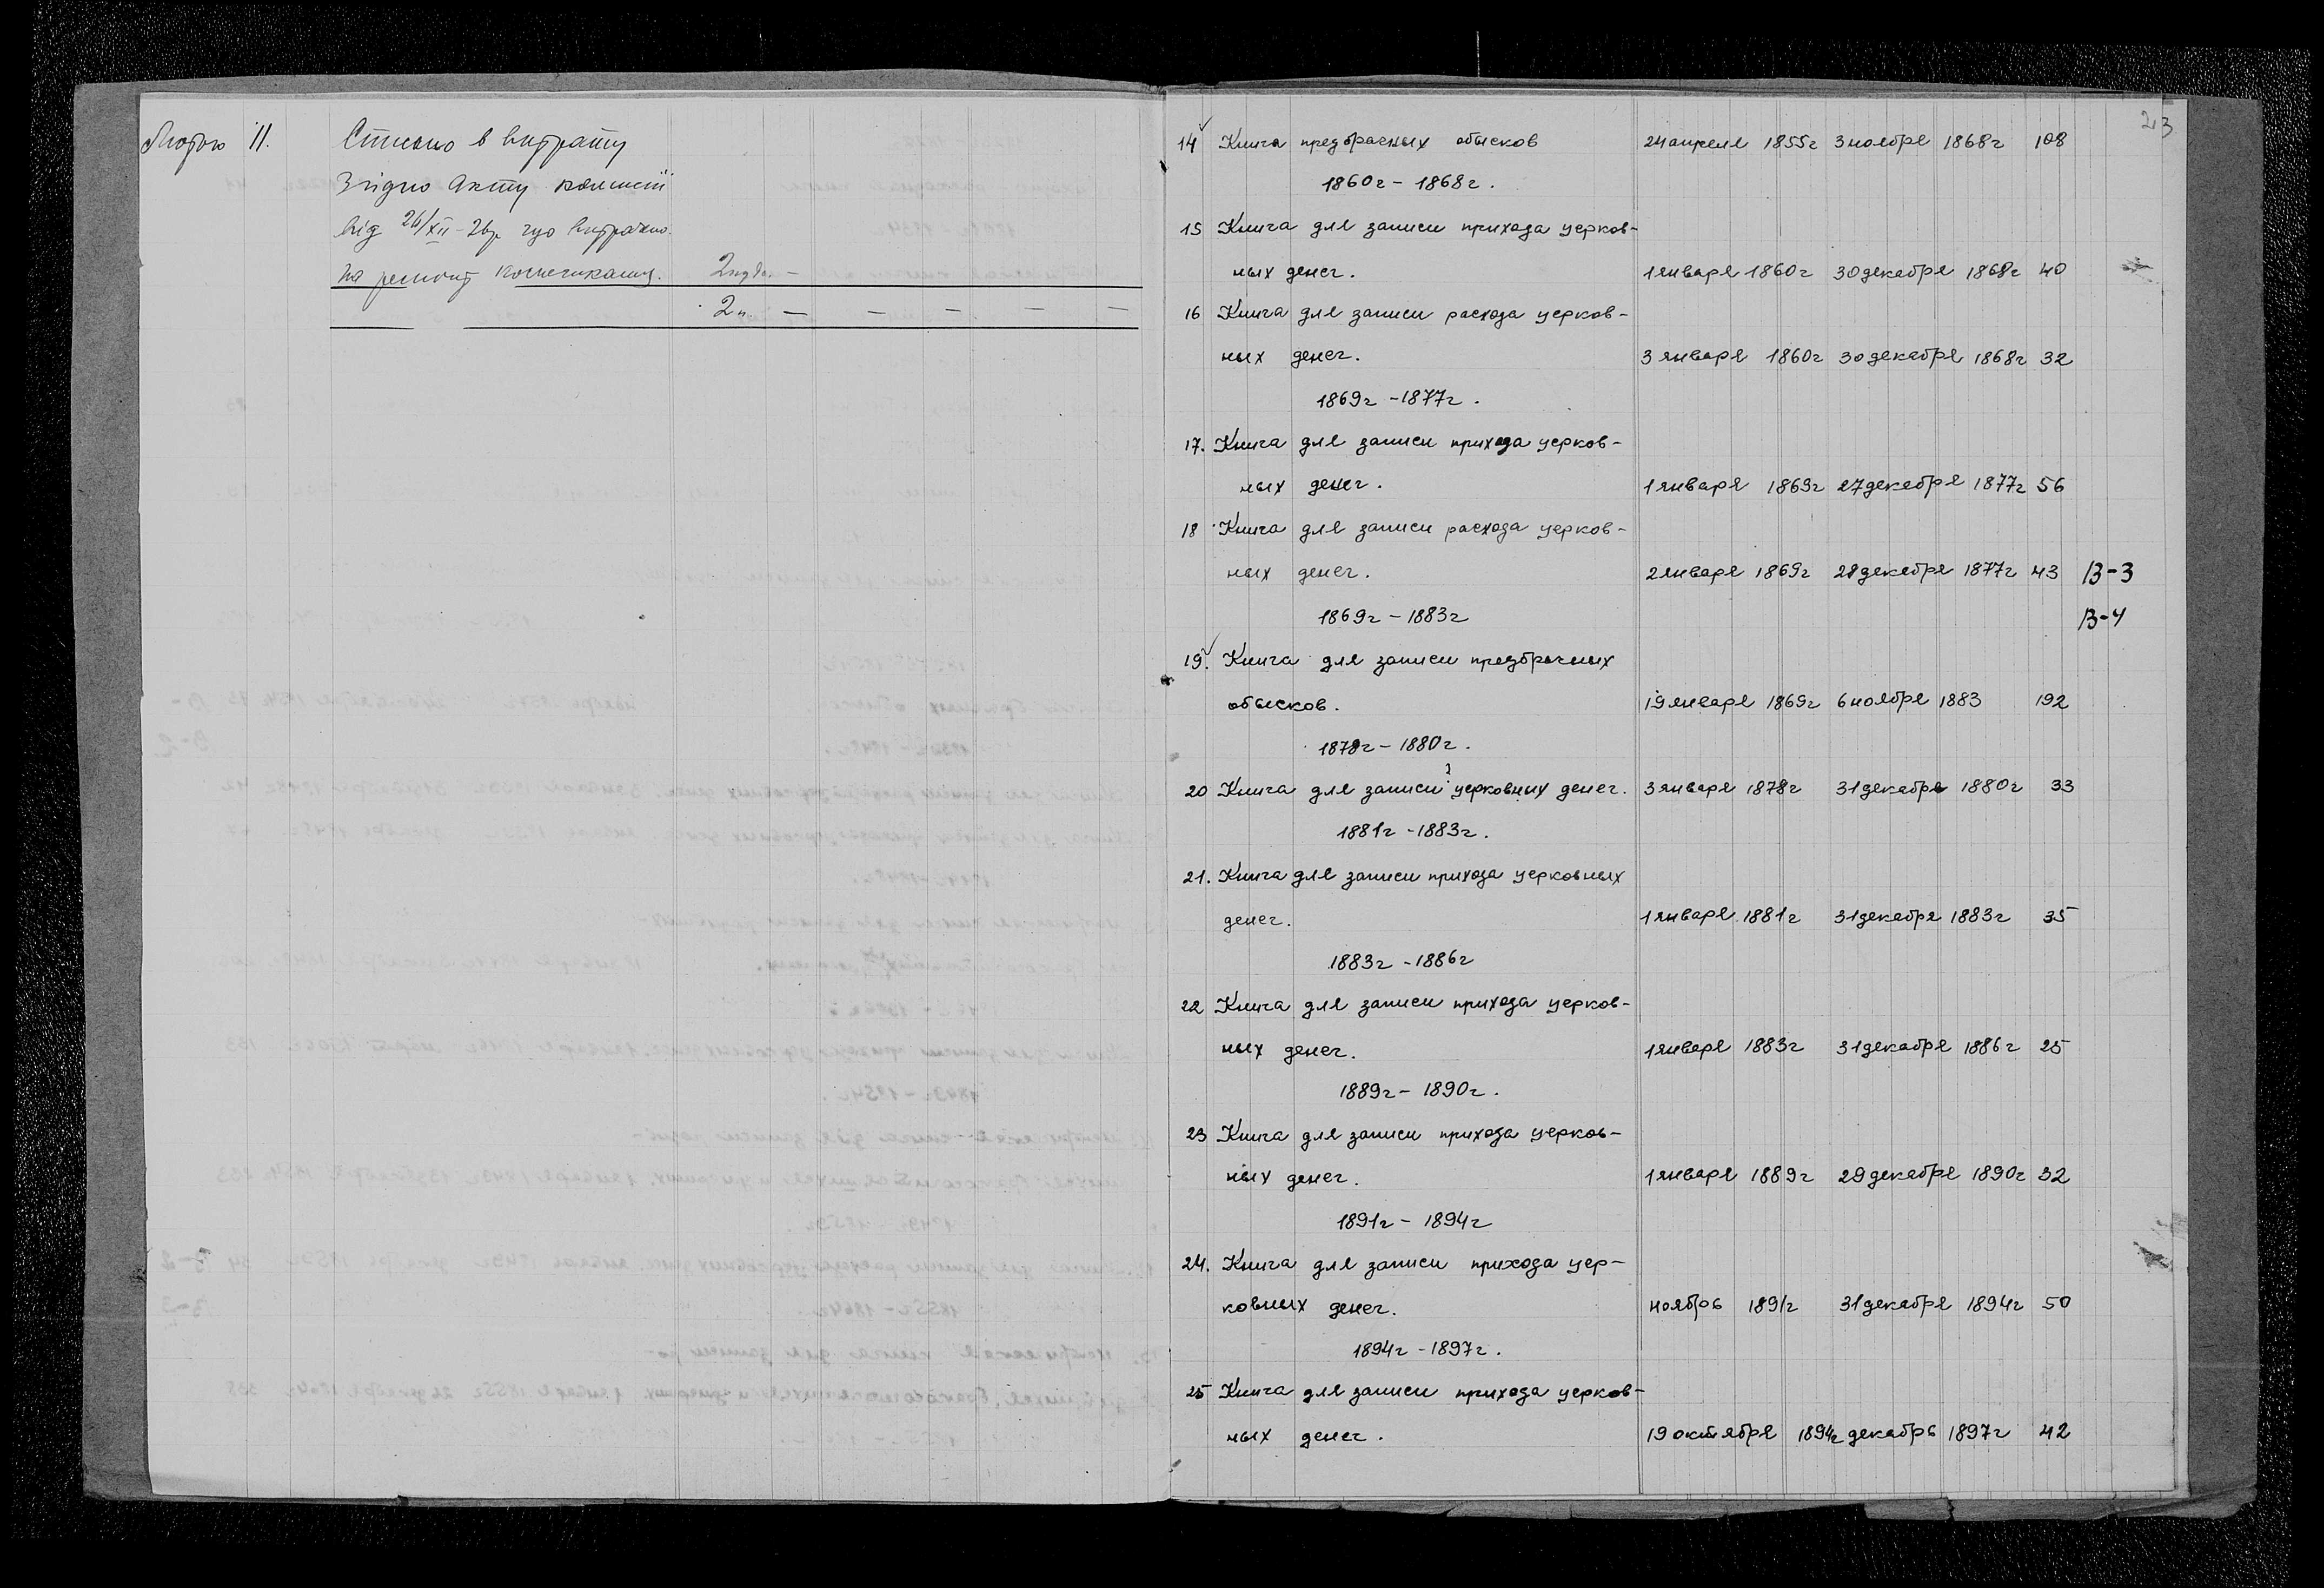 Лютого 11. Списано в витрату
Згідно Акту комисії
від 26/XII-26р. що витрачено
на ремонт 2 пуда. -
2 п. — — — — —
23
14 Книга предбрачных обысков 24 апреля 1855г 3 ноября 1868г 108
1860г - 1868г.
15 Книга для записи прихода церков-
ных денег. 1 января 1860г 30 декабря 1868г 40
16 Книга для записи расхода церков-
ных денег. 3 января 1860г 30 декабря 1868г 32
1869г - 1877г.
17. Книга для записи прихода церков-
ных денег. 1 января 1869г 27 декабря 1877г 56
18 Книга для записи расхода церков-
ных денег. 2 января 1869г 28 декабря 1877г 43 В-3
1869г - 1883г В-4
19. Книга для записи предбрачных
обысков. 19 января 1869г 6 ноября 1883 192
1878г - 1880г.
20 Книга для записи ? церковных денег. 3 января 1878г 31 декабря 1880г 33
1881г - 1883г.
21. Книга для записи прихода церковных
денег. 1 января 1881г 31 декабря 1883г 35
1883г - 1886г
22 Книга для записи прихода церков-
ных денег. 1 января 1883г 31 декабря 1886г 25
1889г - 1890г.
23 Книга для записи прихода церков-
ных денег. 1 января 1889г 29 декабря 1890г 32
1891г - 1894г
24. Книга для записи прихода цер-
ковных денег. ноябрь 1891г 31 декабря 1894г 50
1894г - 1897г.
25 Книга для записи прихода церков-
ных денег. 19 октября 1894г декабрь 1897г 42